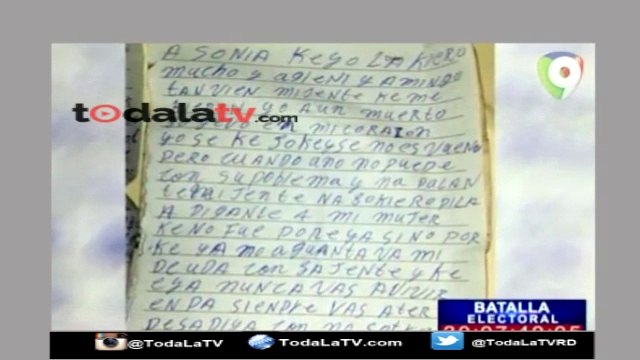 A SONIA KEYO LA KIERO
mucho y AGIENI y A MINGO
TANVIEN MIJENTE KE ME
todalatv.com
YO AUN MUERTO
EN MI CORAZON
yo SE KE JOKEySE NO ES VUENO
PERO CUANDO AÑO NO PUEDE
CON SU POBLEMA y NA PALAN
JENTE NA
A DIGANLE A MI MUJER
KE NO FUE POR EYA SINO POR
KE YA NO AGUANTAVA MI
DEUDA CON SA JENTE y KE
EYA NUNCA VAS A VIVIR
EN PA SIENPRE VAS A TER
9
BATALLA
ELECTORAL
@TodaLaTV
/TodaLaTV
@TodaLaTVRD